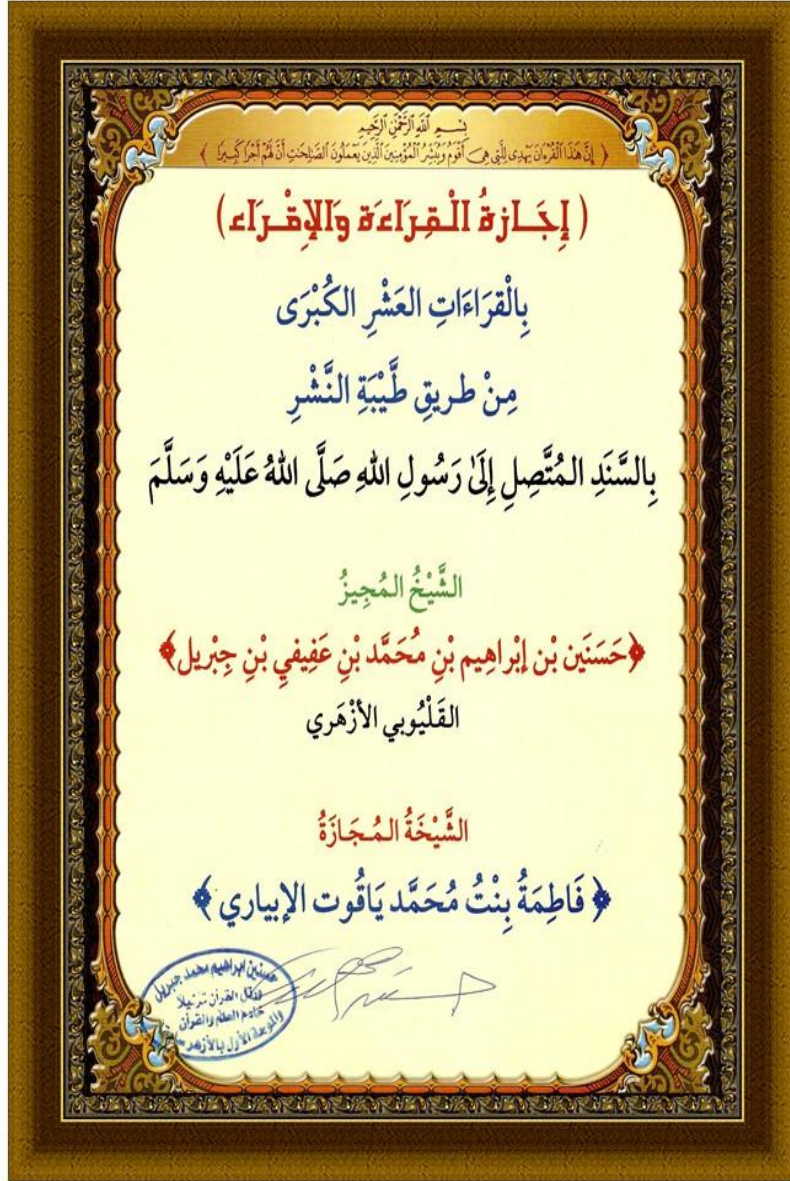 بِسْمِ اللَّهِ الرَّحْمَٰنِ الرَّحِيمِ
﴿ إِنَّ هَٰذَا الْقُرْءَانَ يَهْدِى لِلَّتِى هِىَ أَقْوَمُ وَيُبَشِّرُ الْمُؤْمِنِينَ الَّذِينَ يَعْمَلُونَ الصَّٰلِحَٰتِ أَنَّ لَهُمْ أَجْرًا كَبِيرًا ﴾
( إِجَازةُ الْقِرَاءَة وَالإِقْرَاء)
بِالْقرَاءَاتِ العَشْرِ الكُبْرَى
مِنْ طريقِ طَّيْبَةِ النَّشْرِ
بِالسَّنَدِ المُتَّصِلِ إِلَىٰ رَسُولِ اللهِ صَلَّى اللهُ عَلَيْهِ وَسَلَّمَ
الشَّيْخُ المُجِيزُ
﴿حَسَنَين بْن إبْراهِيم بْنِ مُحَمَّد بْنِ عَفِيفيِ بْنِ جِبْريل﴾
القَلْيُوبي الأزْهَري
الشَّيْخَةُ المُجَازَةُ
﴿ فَاطِمَةُ بِنْتُ مُحَمَّد يَاقُوت الإبياري ﴾
حسنين ابراهيم محمد جبريل
القرآن ترتيلاً
خادم العلم والقرآن
والموجه الأول بالأزهر